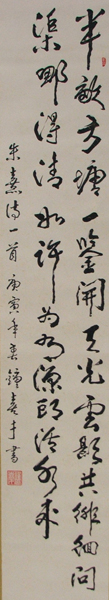 半畝方塘一鑒開天光雲影共徘徊問
渠那得清如許為有源頭活水來
朱熹詩一首庚寅年